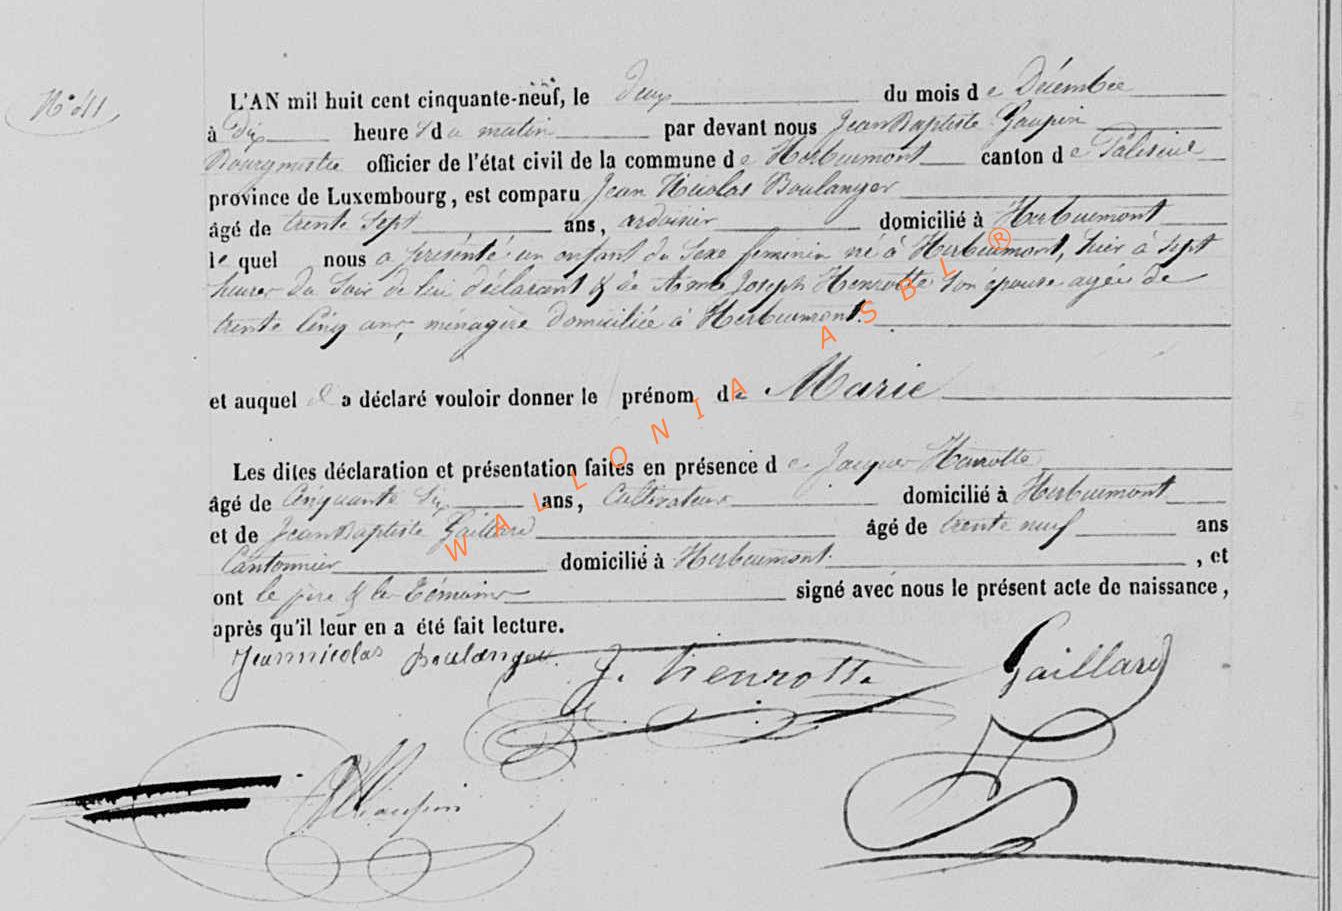 N° 41
L'AN mil huit cent cinquante-neuf, le deux du mois de Décembre
à dix heures du matin par devant nous Jean Baptiste Gaupin
Bourgmestre officier de l'état civil de la commune de Herbeumont canton de Paliseul
province de Luxembourg, est comparu Jean Nicolas Boulanger
âgé de trente sept ans, ardoisier domicilié à Herbeumont
lequel nous a présenté un enfant du sexe feminin né à Herbeumont, hier à sept
heures du soir de lui déclarant & de Anne Joseph Henrotte son épouse agée de
trente cinq ans, ménagère domiciliée à Herbeumont.
et auquel il a déclaré vouloir donner le prénom de Marie
Les dites déclaration et présentation faites en présence de Jacques Henrotte
âgé de cinquante six ans, cultivateur domicilié à Herbeumont
et de Jean Baptiste Gaillard âgé de trente neuf ans
Cantonnier domicilié à Herbeumont , et
ont le père & les témoins signé avec nous le présent acte de naissance,
après qu'il leur en a été fait lecture.
Jeannicolas Boulanger. J. henrotte Gaillard
JBGaupin
WALLONIA ASBL ®